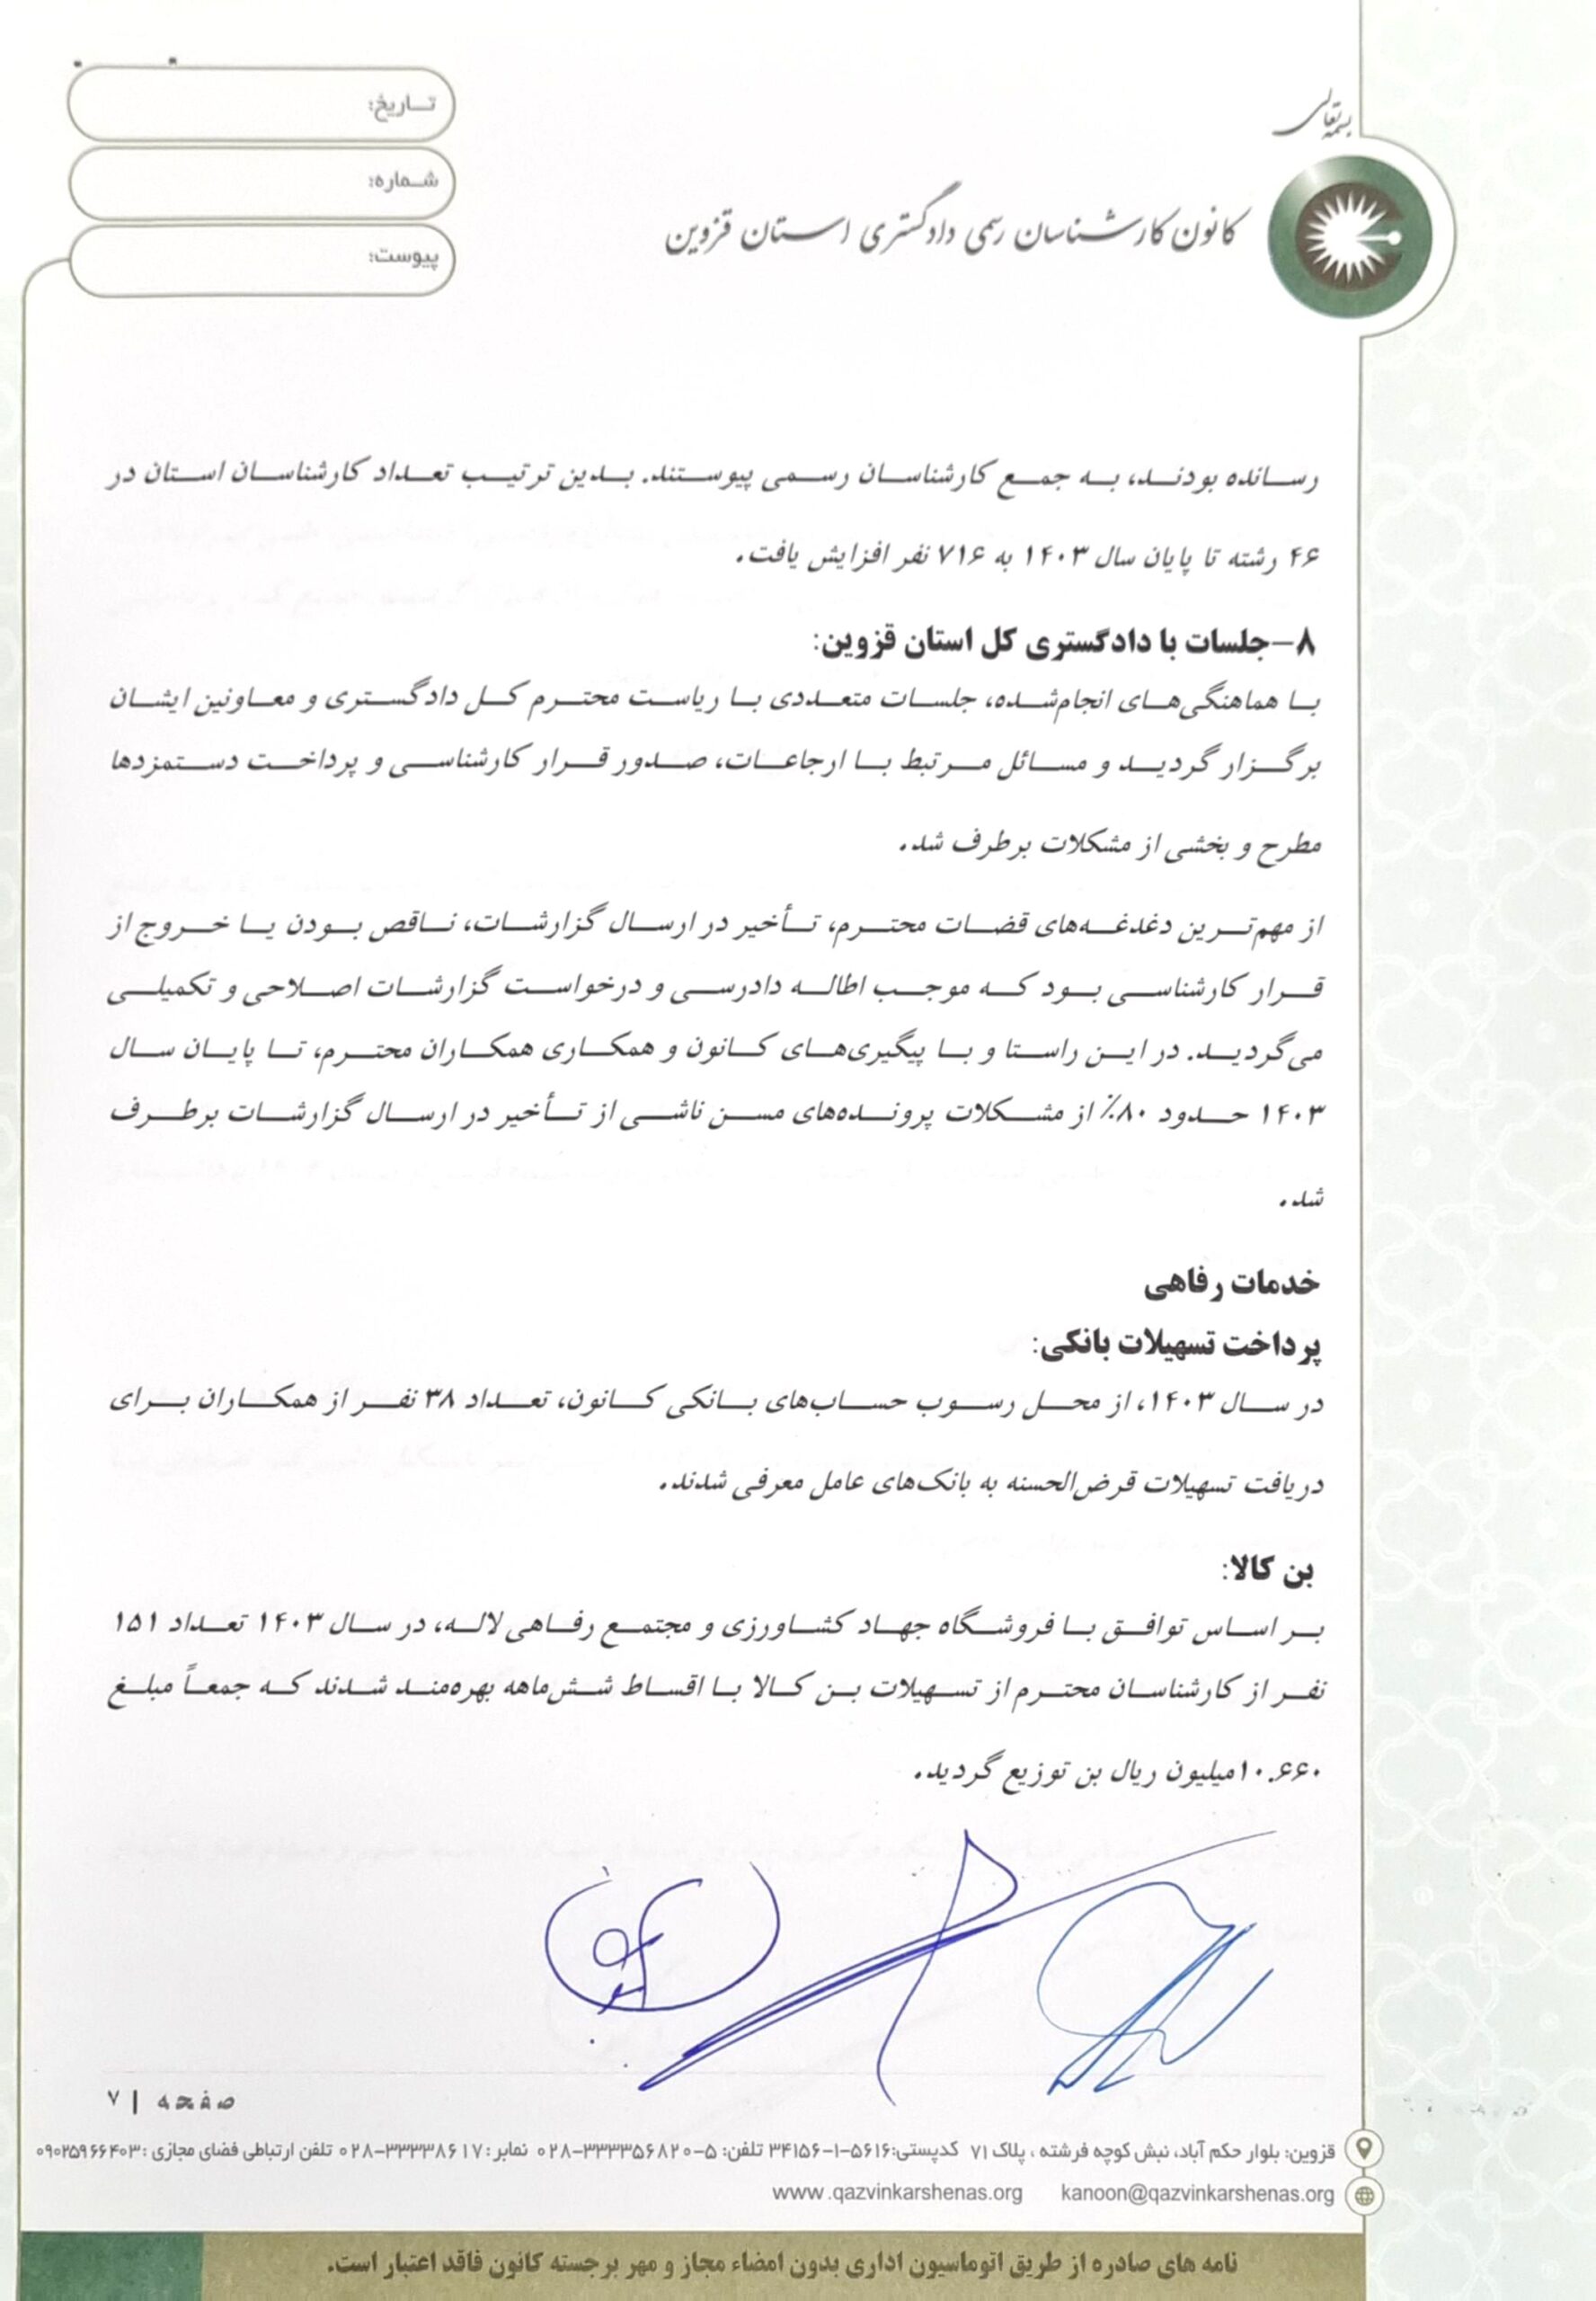 بسمه تعالی
کانون کارشناسان رسمی دادگستری استان قزوین
تاریخ:
شماره:
پیوست:
رسانده بودند، به جمع کارشناسان رسمی پیوستند. بدین ترتیب تعداد کارشناسان استان در
۴۶ رشته تا پایان سال ۱۴۰۳ به ۷۱۶ نفر افزایش یافت.
۸-جلسات با دادگستری کل استان قزوین:
با هماهنگی‌های انجام‌شده، جلسات متعددی با ریاست محترم کل دادگستری و معاونین ایشان
برگزار گردید و مسائل مرتبط با ارجاعات، صدور قرار کارشناسی و پرداخت دستمزدها
مطرح و بخشی از مشکلات برطرف شد.
از مهم‌ترین دغدغه‌های قضات محترم، تأخیر در ارسال گزارشات، ناقص بودن یا خروج از
قرار کارشناسی بود که موجب اطاله دادرسی و درخواست گزارشات اصلاحی و تکمیلی
می‌گردید. در این راستا و با پیگیری‌های کانون و همکاری همکاران محترم، تا پایان سال
۱۴۰۳ حدود ۸۰٪ از مشکلات پرونده‌های مسن ناشی از تأخیر در ارسال گزارشات برطرف
شد.
خدمات رفاهی
پرداخت تسهیلات بانکی:
در سال ۱۴۰۳، از محل رسوب حساب‌های بانکی کانون، تعداد ۳۸ نفر از همکاران برای
دریافت تسهیلات قرض‌الحسنه به بانک‌های عامل معرفی شدند.
بن کالا:
بر اساس توافق با فروشگاه جهاد کشاورزی و مجتمع رفاهی لاله، در سال ۱۴۰۳ تعداد ۱۵۱
نفر از کارشناسان محترم از تسهیلات بن کالا با اقساط شش‌ماهه بهره‌مند شدند که جمعاً مبلغ
۱۰.۶۶۰میلیون ریال بن توزیع گردید.
صفحه | ۷
قزوین: بلوار حکم آباد، نبش کوچه فرشته ، پلاک ۷۱ کدپستی:۵۶۱۶-۱-۳۴۱۵۶ تلفن: ۵-۰۲۸-۳۳۳۳۵۶۸۲ نمابر: ۰۲۸-۳۳۳۳۸۶۱۷ تلفن ارتباطی فضای مجازی :۰۹۰۲۵۹۶۶۴۰۳
www.qazvinkarshenas.org kanoon@qazvinkarshenas.org
نامه های صادره از طریق اتوماسیون اداری بدون امضاء مجاز و مهر برجسته کانون فاقد اعتبار است.